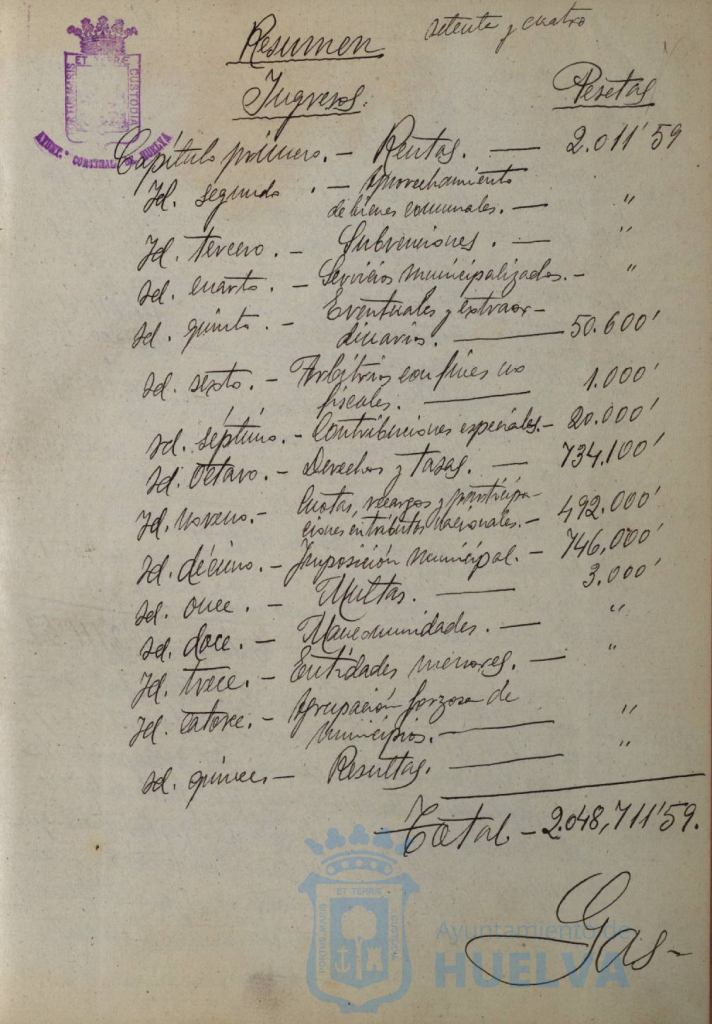 setenta y cuatro
Resumen
Ingresos. Pesetas
Capítulo primero. - Rentas. — 2.011'59
Id. segundo . - Aprovechamiento
de bienes comunales. — "
Id. tercero. - Subvenciones. — "
Id. cuarto. - Servicios municipalizados. - "
Id. quinto. - Eventuales y extraor-
dinarios. — 50.600'
Id. sexto. - Arbitrios con fines no
fiscales. — 1.000'
Id. séptimo. - Contribuciones especiales. - 20.000'
Id. octavo. - Derechos y tasas. — 734,100'
Id. noveno. - Cuotas, recargos y participa-
ciones en tributos nacionales. - 492.000'
Id. décimo. - Imposición municipal. - 746,000'
Id. once. - Multas. — 3.000'
Id. doce. - Mancomunidades. — "
Id. trece. - Entidades menores. — "
Id. catorce. - Agrupación forzosa de
municipios. — "
Id. quince - Resultas. — "
Total - 2.048,711'59.
Gas-
PORTUS MARIS ET TERRE CUSTODIA
AYUNT.º CONSTITUCIONAL HUELVA
PORTUS MARIS ET TERRIS CUSTODIA
Ayuntamiento de
HUELVA